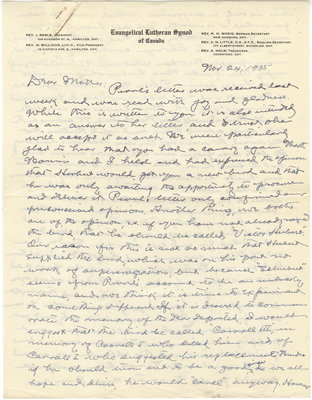 Evangelical Lutheran Synod
of Canada
REV. J. REBLE, PRESIDENT
HAMILTON, ONT.
REV. N. WILLISON, LITT.D., VICE-PRESIDENT
HAMILTON, ONT.
ENGLISH SECRETARY
REV. C. H. LITTLE, D.D., S.T.D.,
WATERLOO, ONT.
TREASURER
Nov. 24, 1935
Dear Mother,
Pearl's letter was received last
week and was read with joy and gladness.
While this is written to you it is also intended
as an answer to her letter and I trust she
will accept it as such. We were particularly
glad to hear that you had a canary again. Both
Bonnie and I held and had expressed the opinion
that Herbert would get you a new bird and that
he was only awaiting the opportunity to procure
and deliver it. Pearl's letter only confirmed our
preconceived opinion. Another thing, we both
are of the opinion if you have not already named
the bird that he should be called Victor Herbert.
Our reason for this is not so much that Herbert
supplied the bird, which was on his part no
work of supererogation, but because
seems from Pearl's account to be an
name and we think it is time to experiment
on something different. If it is desired to commem-
orate the memory of the dear departed, I would
suggest that the bird be called Carroll III, in
memory of Carroll I who and of
Carroll II who suggested his replacement. And
if he should turn out to be a good singer, as we all
hope and desire, he would "carol" anyway.